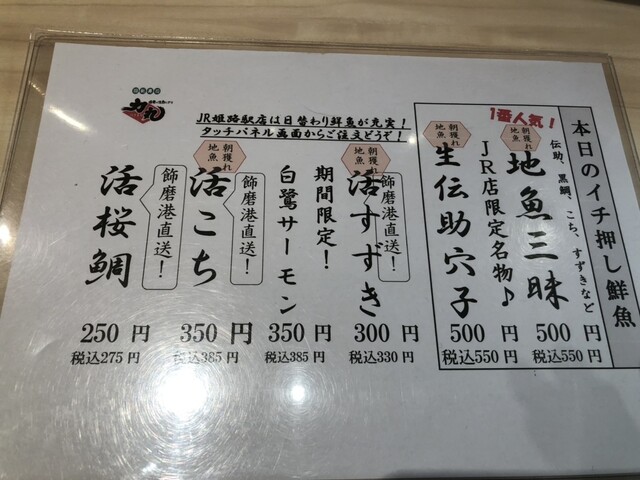 力丸
JR姫路駅店は日替わり鮮魚が充実！
タッチパネル画面からご注文どうぞ！
本日のイチ押し鮮魚
1番人気！
伝助、黒鯛、こち、すずきなど
朝獲れ
地魚
地魚三昧
500円
税込550円
JR店限定名物♪
朝獲れ
地魚
生伝助穴子
500円
税込550円
飾磨港直送！
朝獲れ
地魚
活すずき
300円
税込330円
期間限定！
白鷺サーモン
350円
税込385円
飾磨港直送！
朝獲れ
地魚
活こち
350円
税込385円
飾磨港直送！
活桜鯛
250円
税込275円